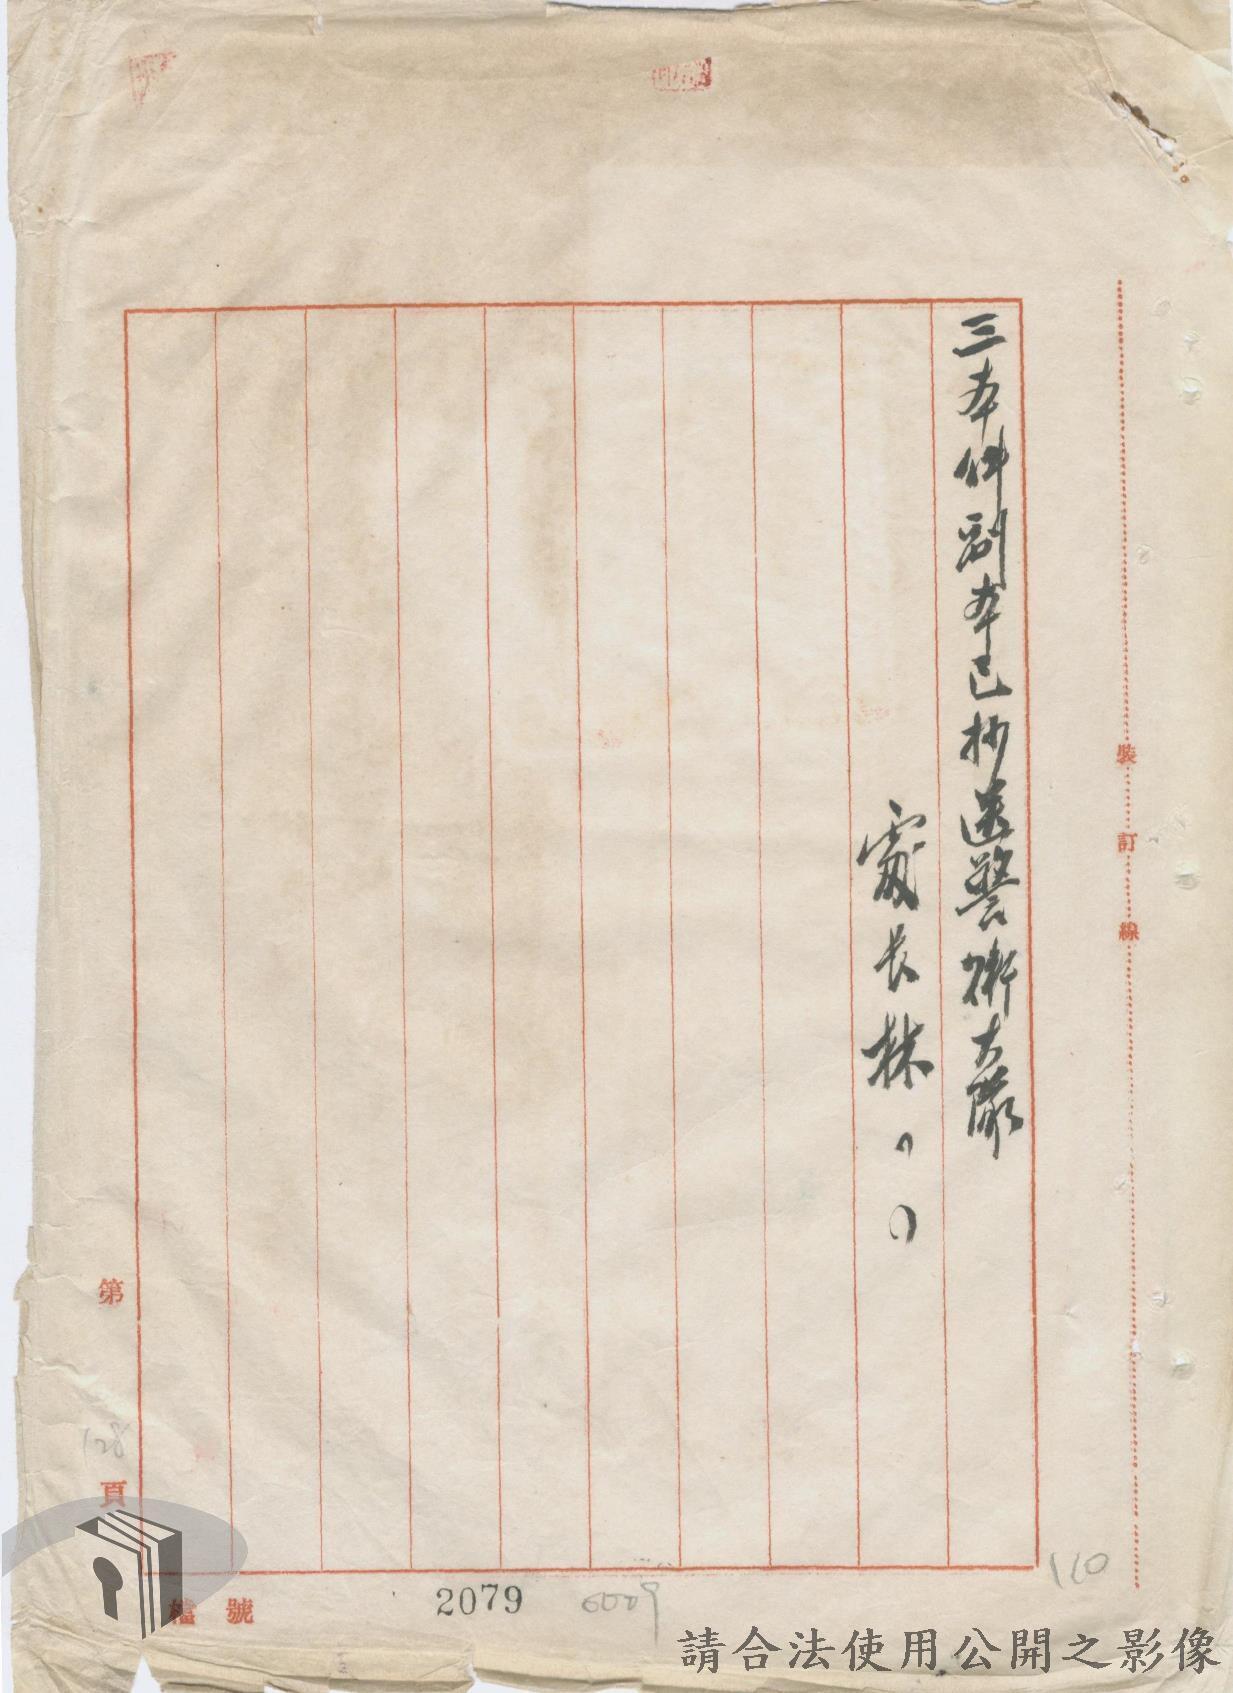 三本件副本已抄送警衛大隊
處長林
裝訂線
第
128
頁
檔號
2079
6009
110
請合法使用公開之影像